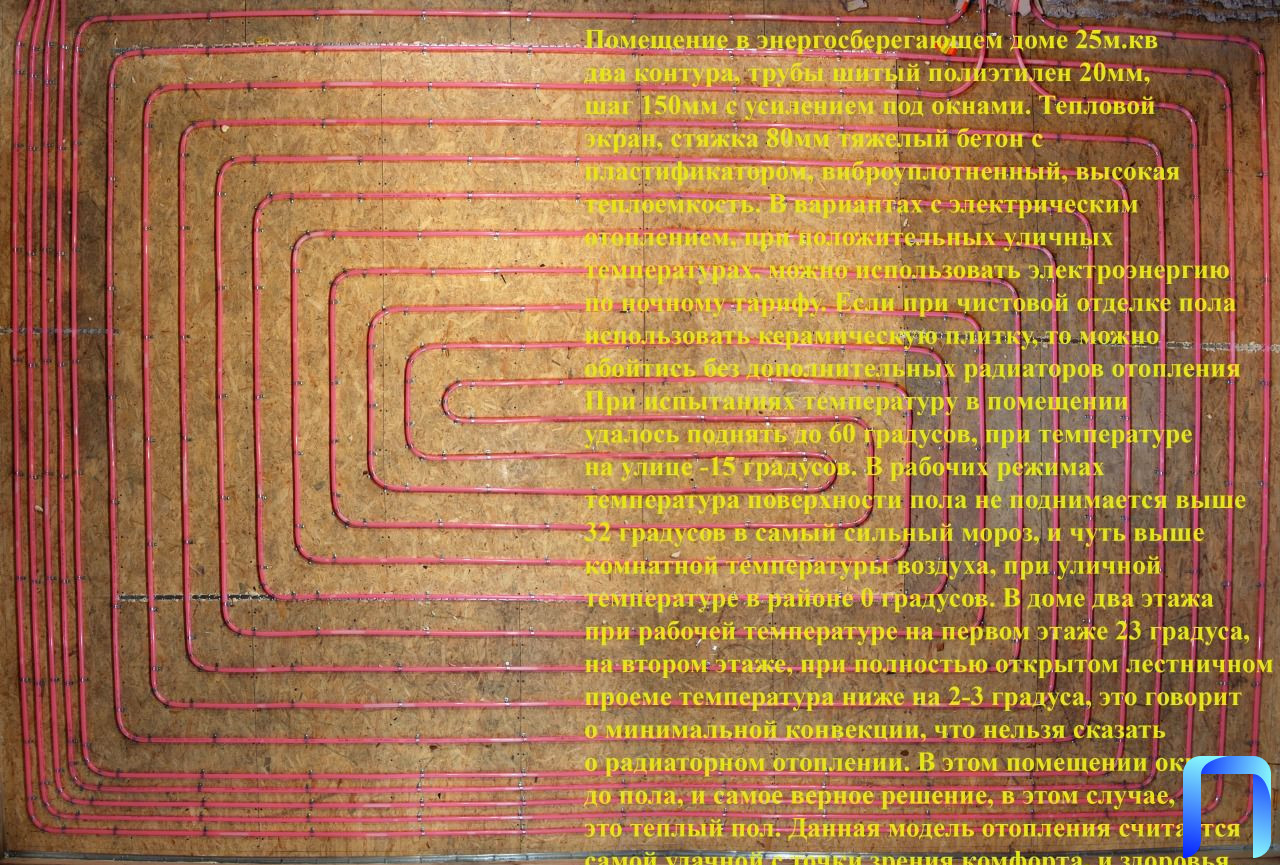 Помещение в энергосберегающем доме 25м.кв
два контура, трубы шитый полиэтилен 20мм,
шаг 150мм с усилением под окнами. Тепловой
экран, стяжка 80мм тяжелый бетон с
пластификатором, виброуплотненный, высокая
теплоемкость. В вариантах с электрическим
отоплением, при положительных уличных
температурах, можно использовать электроэнергию
по ночному тарифу. Если при чистовой отделке пола
использовать керамическую плитку, то можно
обойтись без дополнительных радиаторов отопления
При испытаниях температуру в помещении
удалось поднять до 60 градусов, при температуре
на улице -15 градусов. В рабочих режимах
температура поверхности пола не поднимается выше
32 градусов в самый сильный мороз, и чуть выше
комнатной температуры воздуха, при уличной
температуре в районе 0 градусов. В доме два этажа
при рабочей температуре на первом этаже 23 градуса,
на втором этаже, при полностью открытом лестничном
проеме температура ниже на 2-3 градуса, это говорит
о минимальной конвекции, что нельзя сказать
о радиаторном отоплении. В этом помещении
до пола, и самое верное решение, в этом случае,
это теплый пол. Данная модель отопления считается
самой удачной с точки зрения комфорта, и здоровья